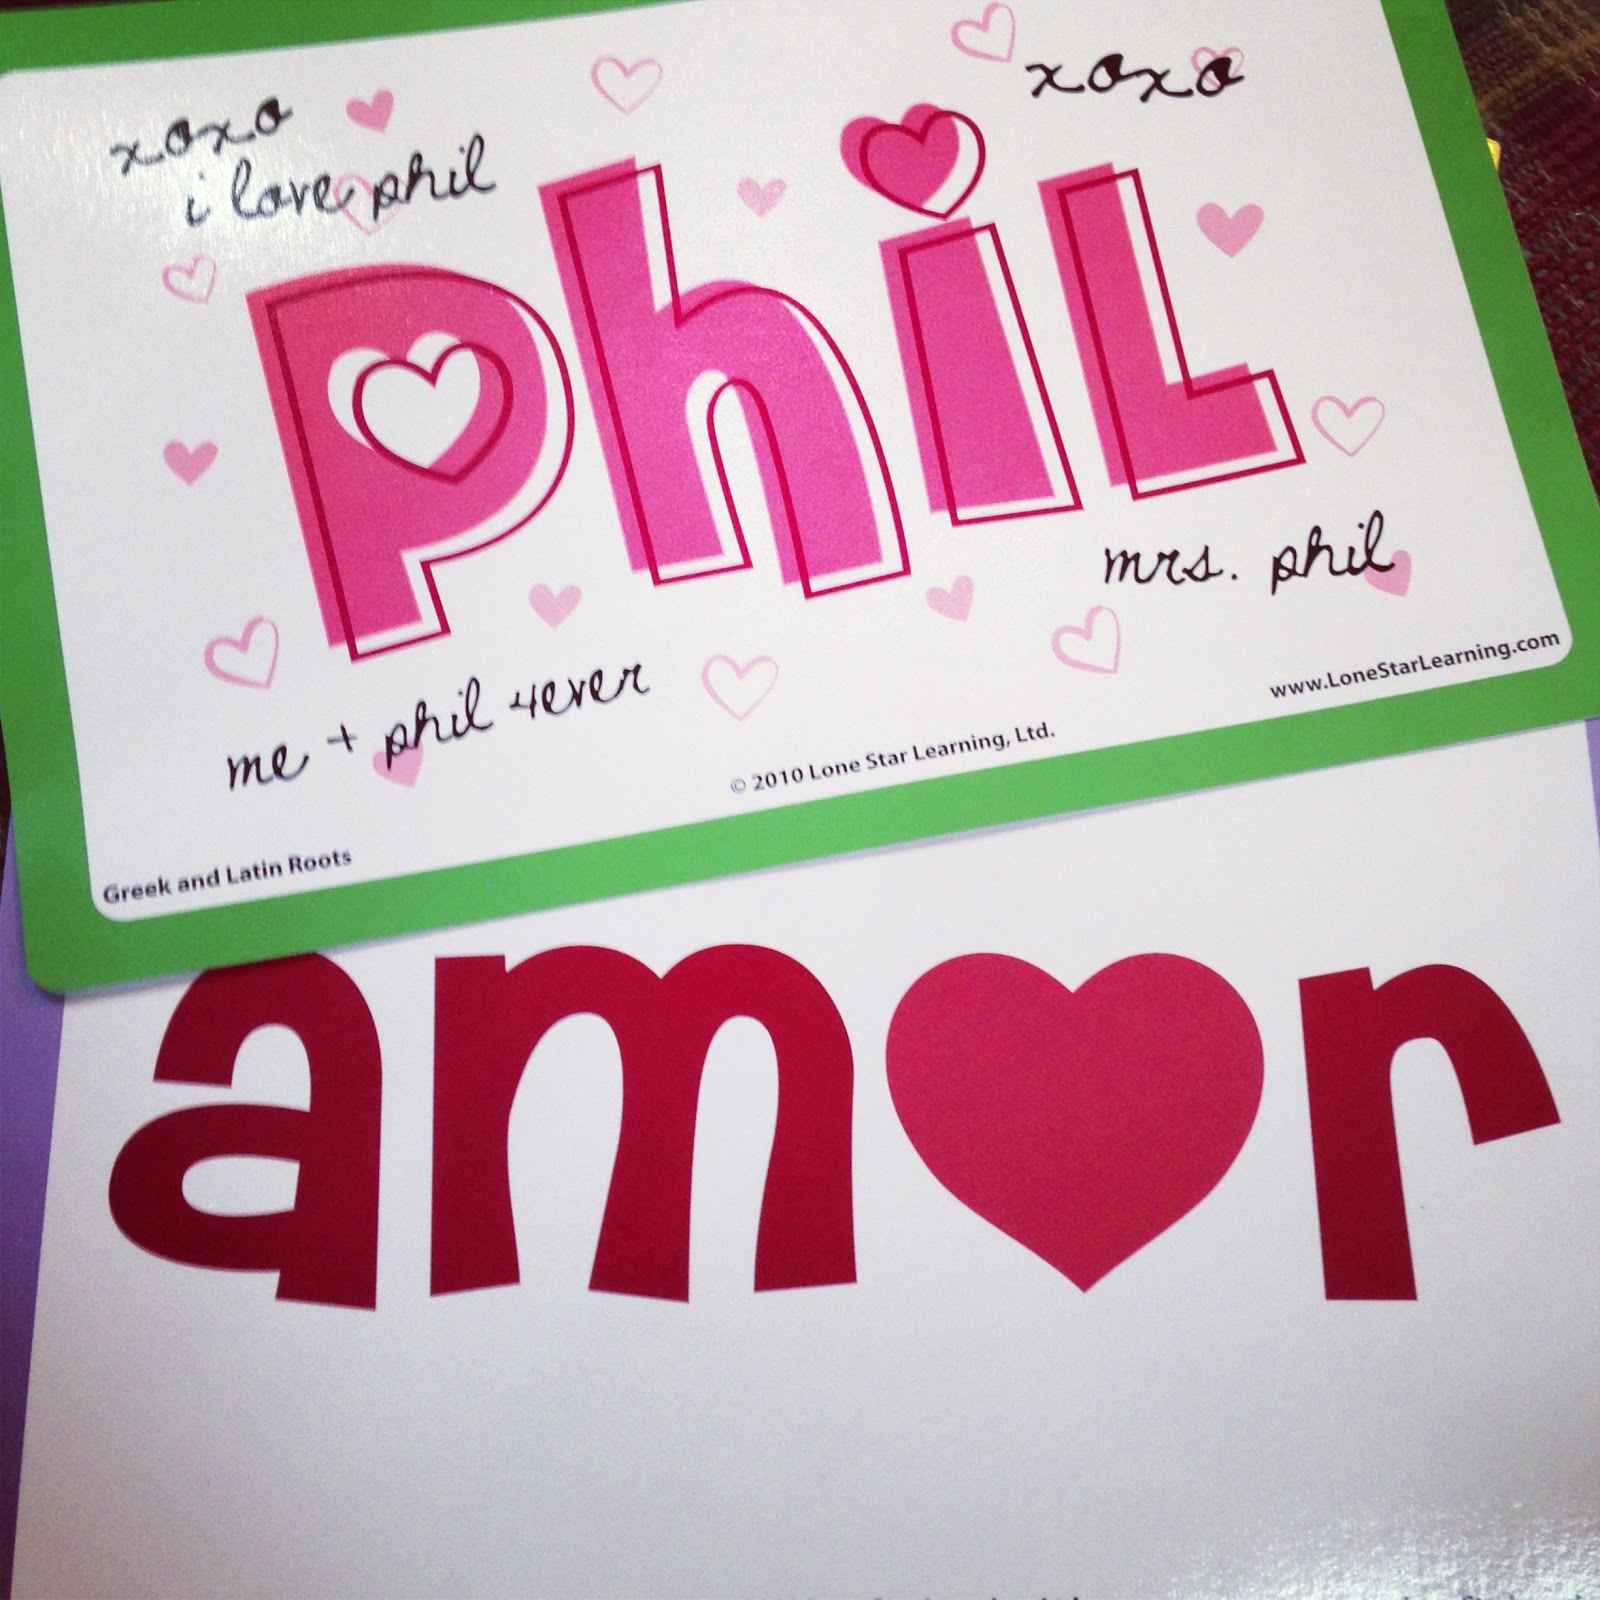 xoxo
i love phil
xoxo
phil
mrs. phil
me + phil 4ever
www.LoneStarLearning.com
© 2010 Lone Star Learning, Ltd.
Greek and Latin Roots
amor